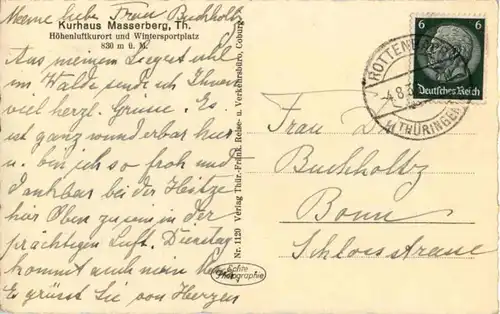 Meine liebe Frau Buchholtz
Kurhaus Masserberg, Th.
Höhenluftkurort und Wintersportplatz
830 m ü. M.
Aus meinem Liegestuhl
im Walde sende ich Ihnen
viel herzl. Grüsse. Es
ist ganz wunderbar hier
u. bin ich so froh und
dankbar bei der Hitze
hier oben zu sein in der
prächtigen Luft. Dienstag
kommt auch mein
Es grüsst Sie von Herzen
Nr. 1120 Verlag Thür.-Fränk. Reise- u. Verkehrsbüro, Coburg
Echte
Photographie
6 6
Deutsches Reich
4.8.
THÜRINGEN
Frau
Buchholtz
Bonn
Schlossstrasse